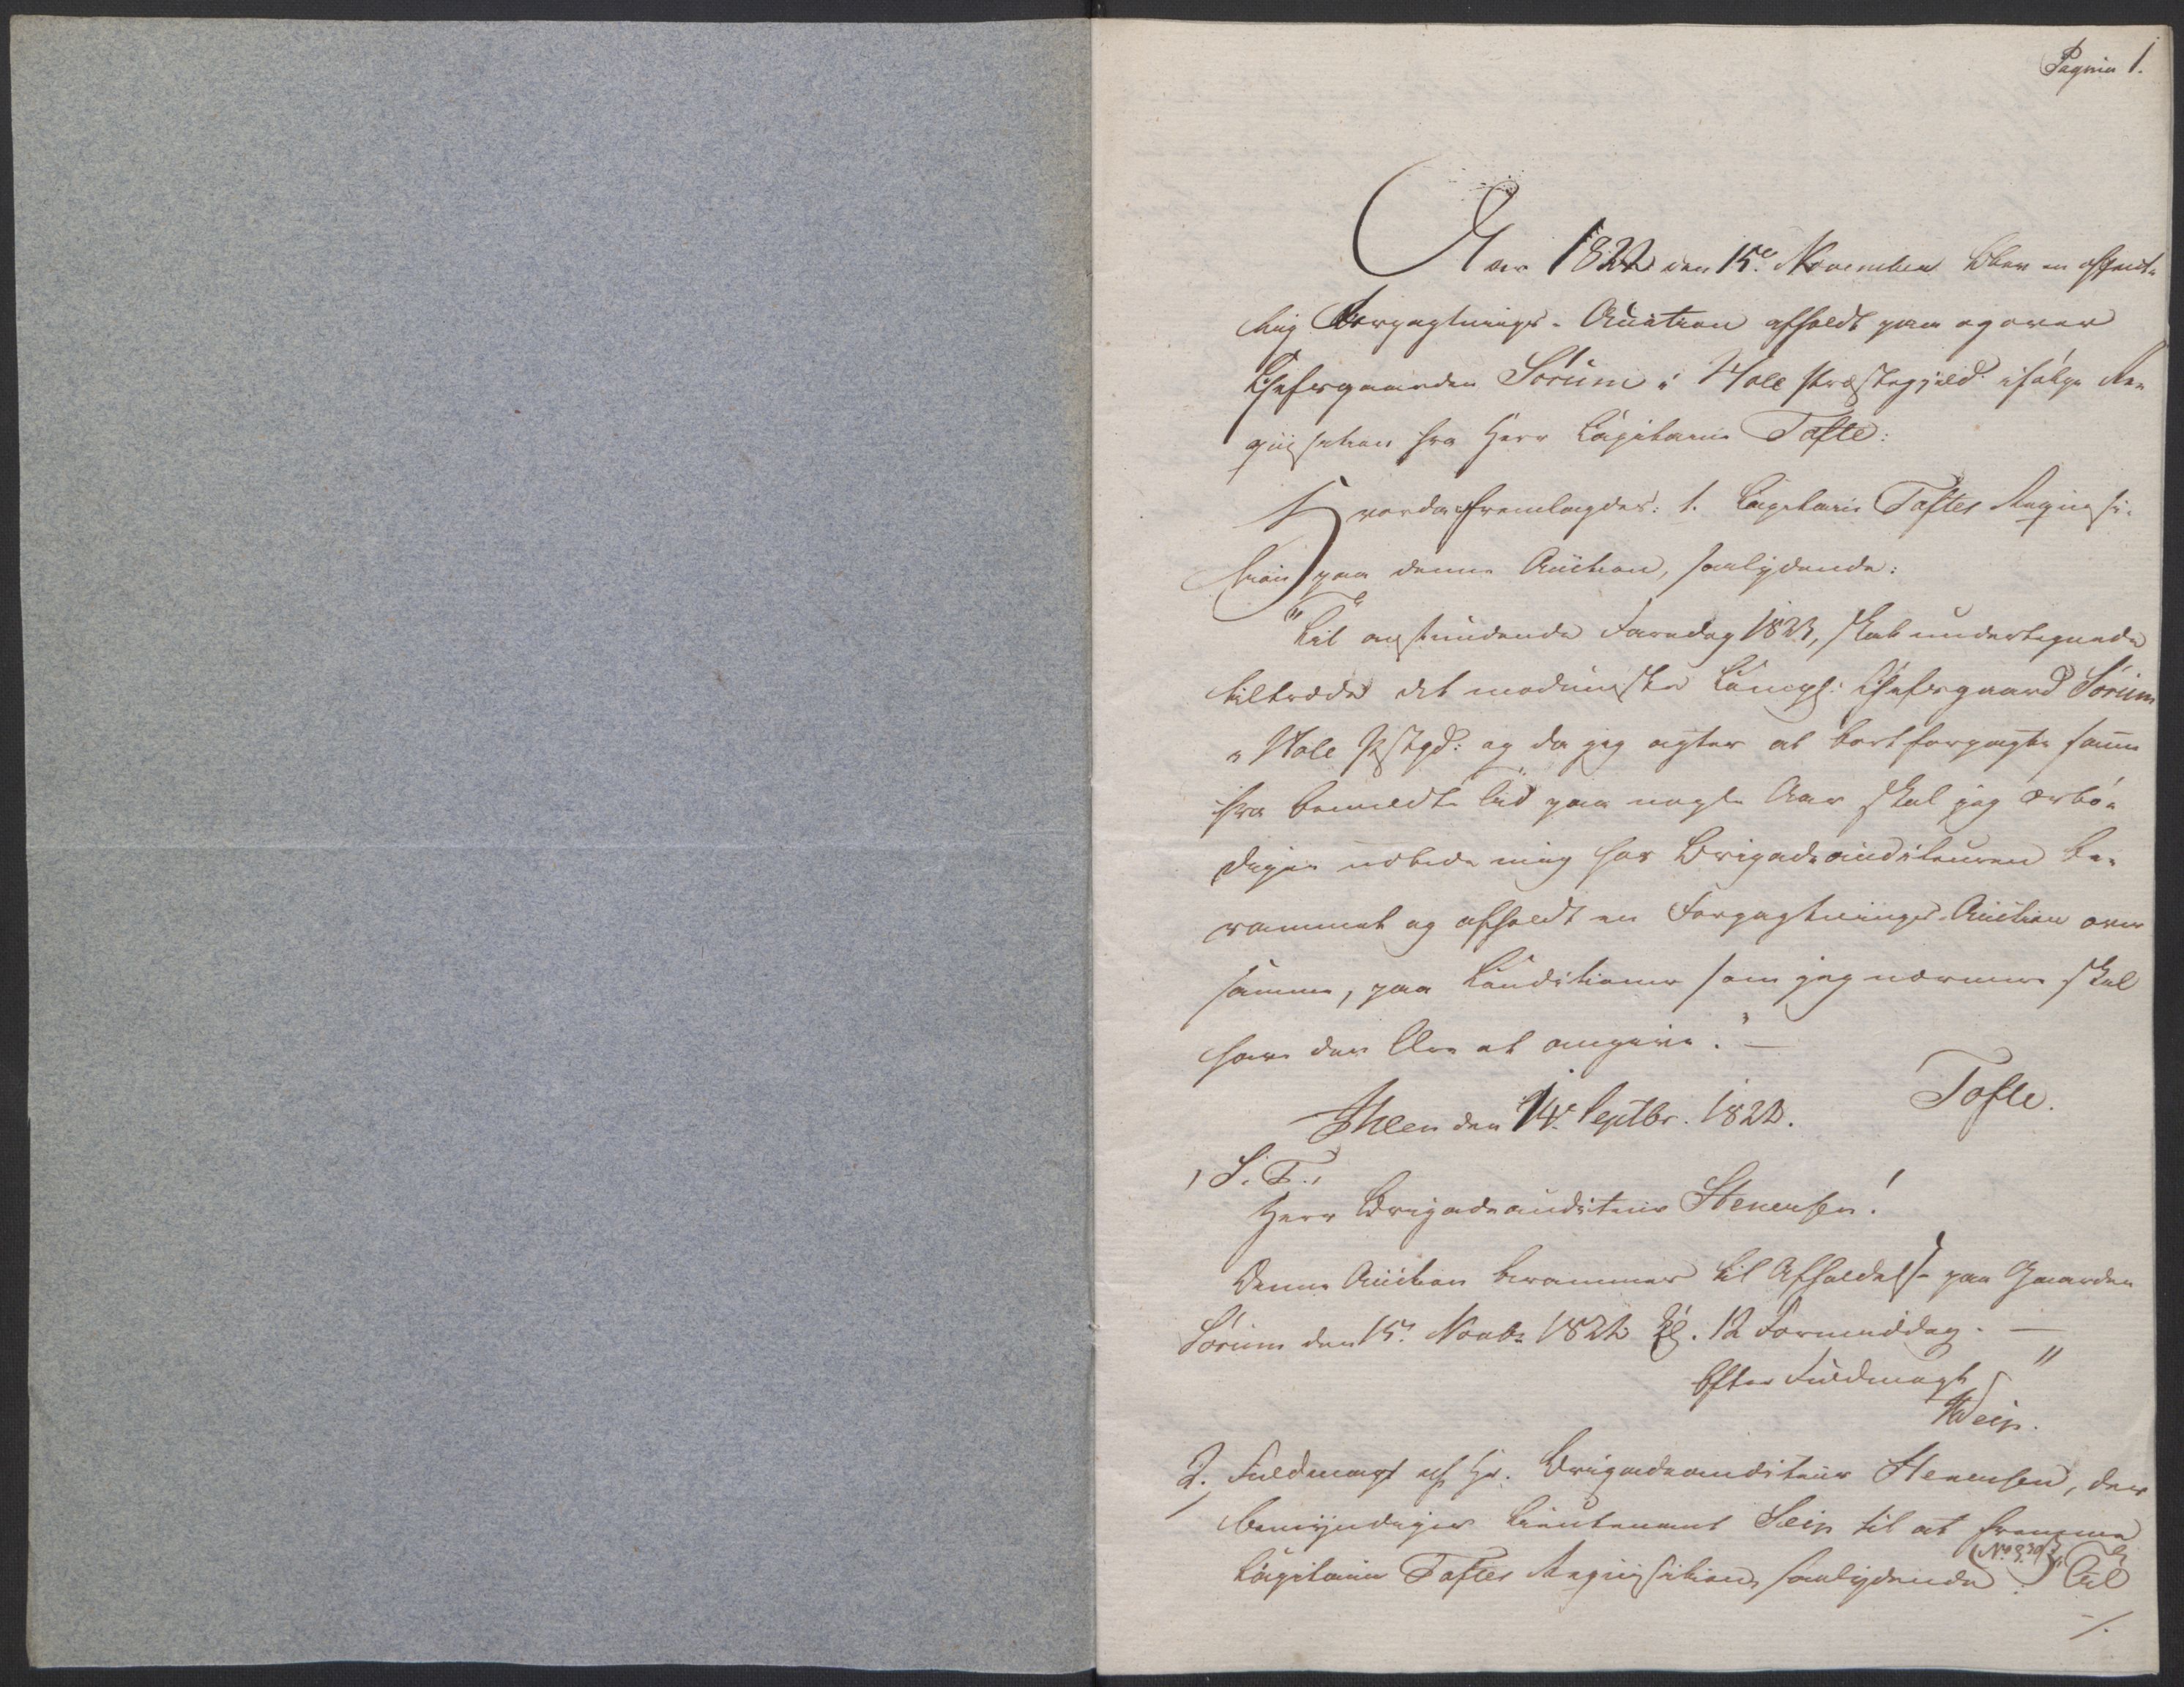 Pagina 1.
Aar 1822 den 15e November blev en offent-
lig Forpagtnings-Auction afholdt paa og over
Chefsgaarden Sørum i Hole Præstegjeld ifølge Re-
quisition fra Herr Capitain Tofte:
Hvorda fremlagdes: 1. Capitain Toftes Requisi-
tion paa denne Auction, saalydende:
"Til anstundende Faredag 1823, skal undertegnede
tiltræde det modumske Comps: Chefsgaard Sørum
i Hole Pstgd: og da jeg agter at bortforpagte samme
fra bemeldte Tid paa nogle Aar skal jeg ærbø-
digen udbede mig hos Brigadeauditeuren be-
rammet og afholdt en Forpagtnings-Auction over
samme, paa Conditioner som jeg nærmere skal
have den Ære at angive." —
Heen den 14e Septbr. 1822. Tofte.
, S. T.,
Herr Brigadeauditeur Stenersen!
Denne Auction berammes til Afholdelse paa Gaarden
Sørum den 15e Novbr 1822 Kl. 12 Formiddag. —
Efter Fuldmagt "
Seip.
2. Fuldmagt af Hr. Brigadeauditeur Stenersen, der
bemyndiger Lieutenant Seip til at fremme
Capitain Toftes Requisition, saalydende: Til
/.